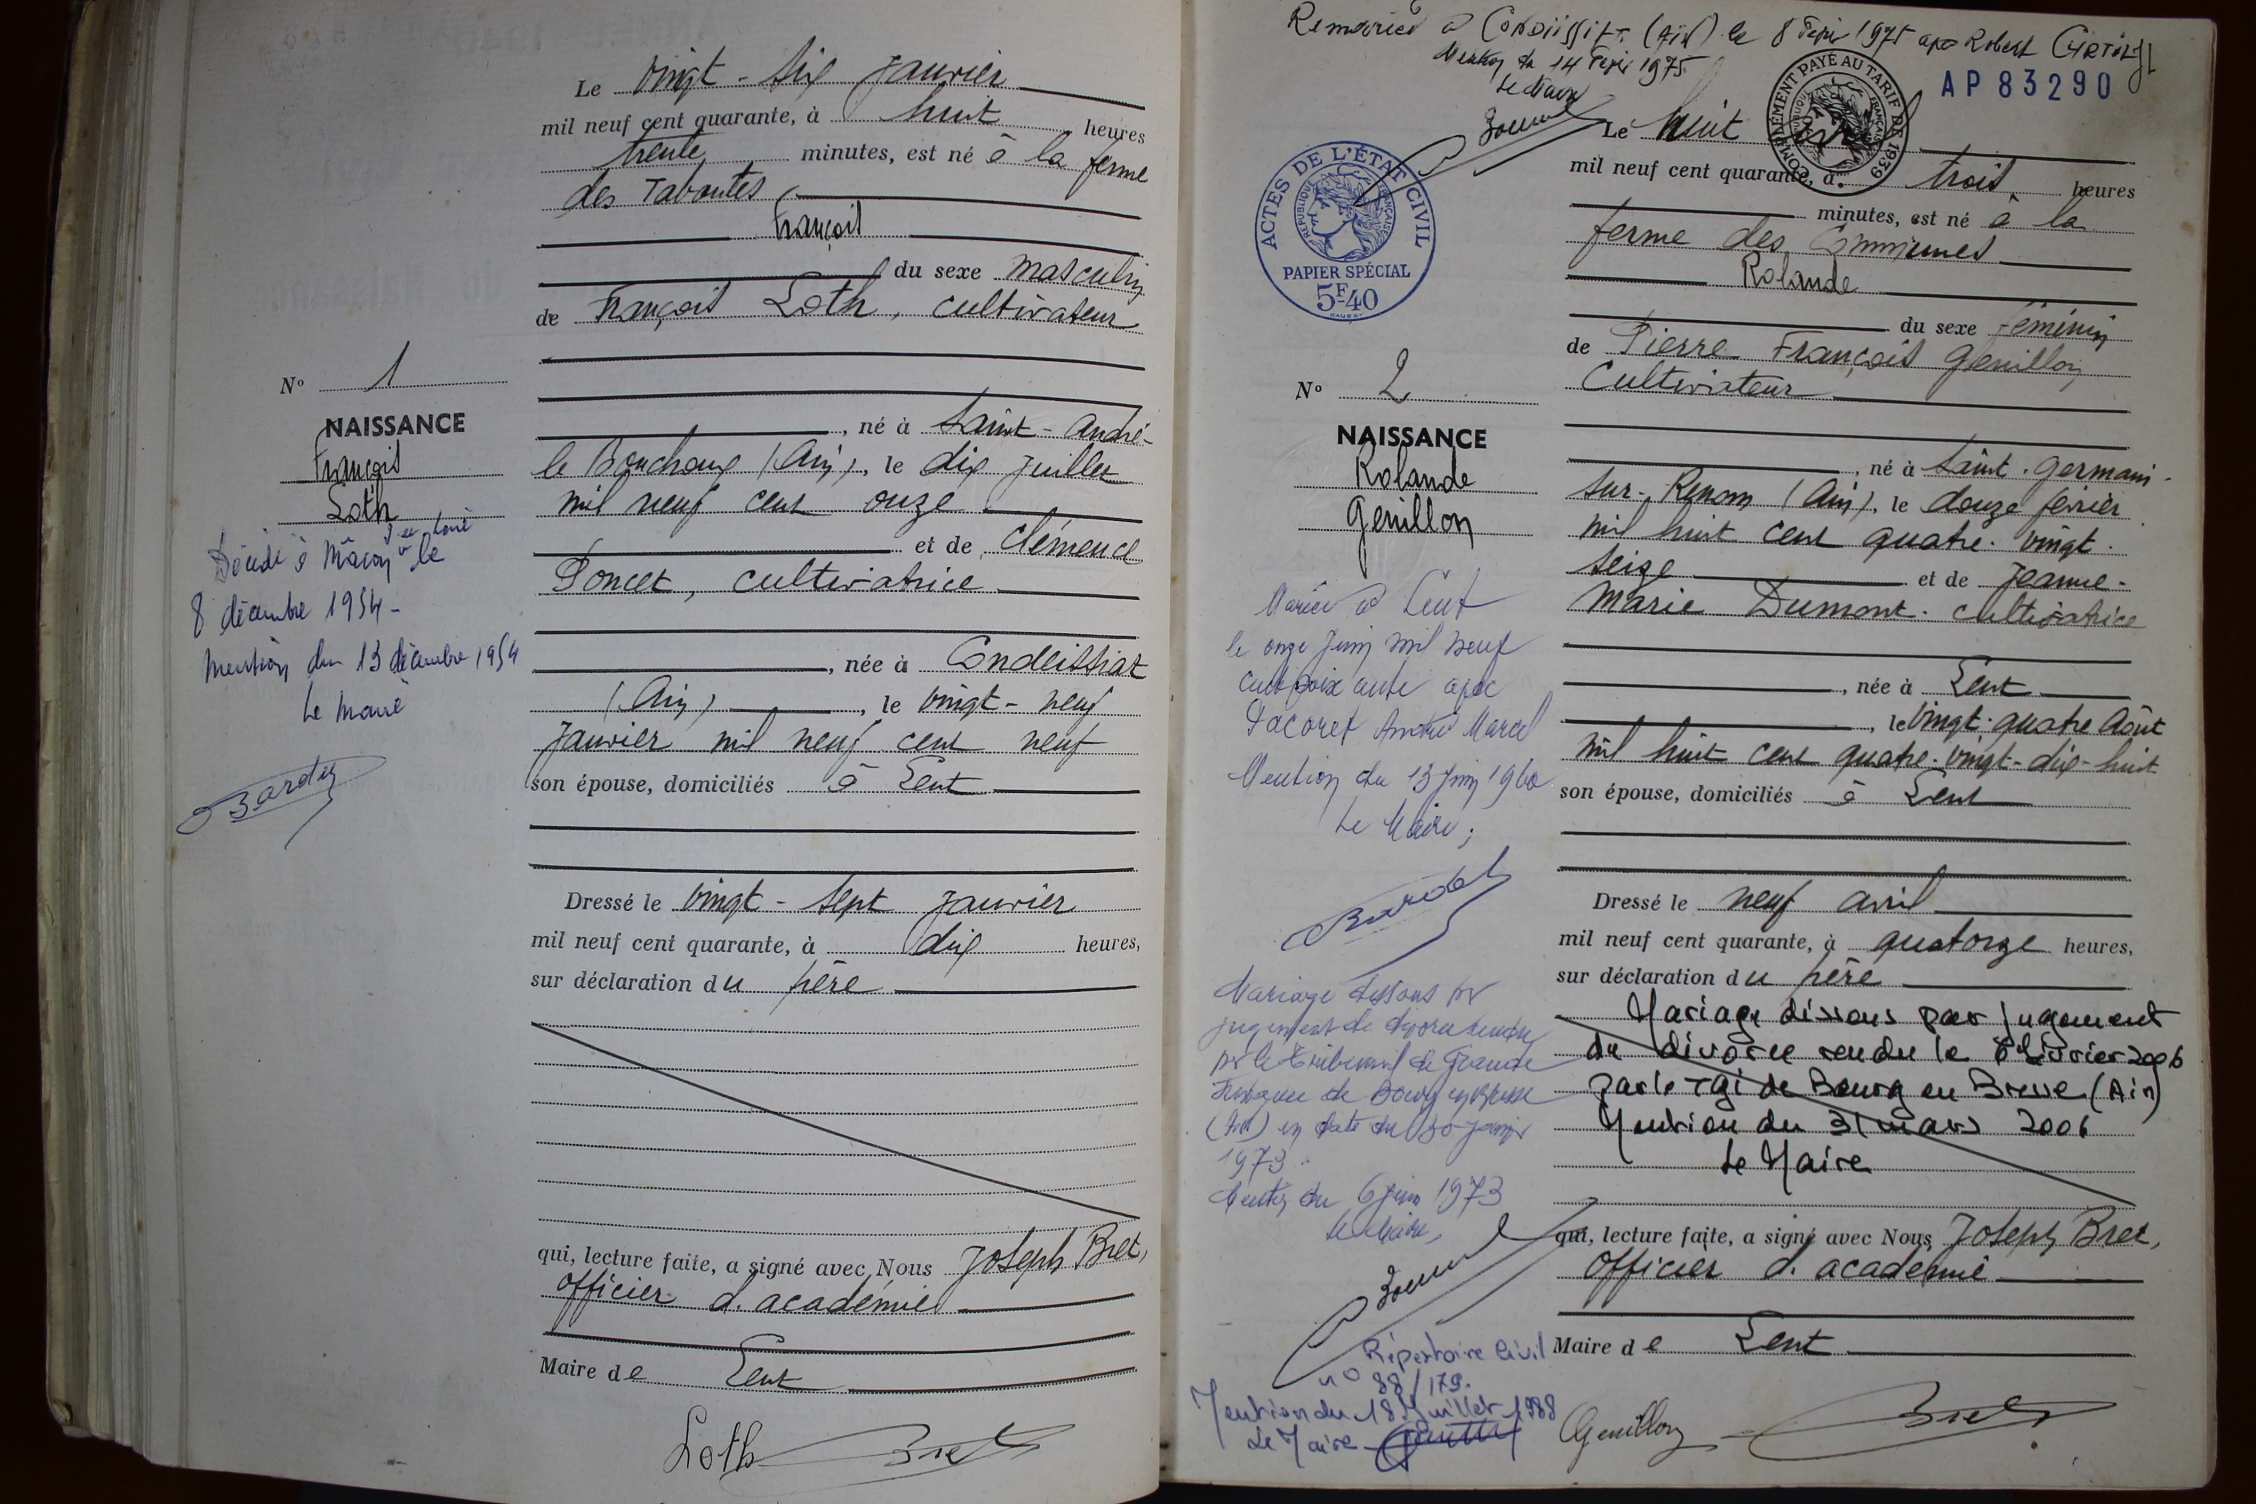 Le vingt-six Janvier
mil neuf cent quarante, à huit heures
trente minutes, est né à la ferme
des Taboutes
François
du sexe masculin
de François Loth, cultivateur
N° 1
NAISSANCE
François
Loth
, né à Saint-André-
le Bouchoux (Ain), le dix Juillet
mil neuf cent onze
et de Clémence
Poncet, cultivatrice
Décédé à Mâcon le
8 décembre 1954-
Mention du 13 décembre 1954
Le Maire
, née à Condeissiat
(Ain), le vingt-neuf
Janvier mil neuf cent neuf
son épouse, domiciliés à Lent
Dressé le vingt-sept Janvier
mil neuf cent quarante, à dix heures,
sur déclaration du père
qui, lecture faite, a signé avec Nous Joseph Bret,
officier d'académie
Maire de Lent
Loth Bret
Remariée à (Ain) le 8 1975 avec Robert
Mention du 14 1975
Le Maire
AP 83290
COMPLÉMENT PAYÉ AU TARIF DE 1939
RÉPUBLIQUE FRANÇAISE
ACTES DE L'ÉTAT CIVIL
RÉPUBLIQUE FRANÇAISE
PAPIER SPÉCIAL
5F40
Le huit
mil neuf cent quarante, à trois heures
minutes, est né à la
ferme des Communes
Rolande
du sexe féminin
de Pierre François Genillon
cultivateur
N° 2
NAISSANCE
Rolande
Genillon
, né à Saint-Germain-
sur-Renom (Ain), le douze février
mil huit cent quatre-vingt-
seize et de Jeanne-
Marie Dumont. cultivatrice
Mariée à Lent
le onze Juin mil neuf
cent soixante avec
Pacoret André Marcel
Mention du 13 Juin 1960
Le Maire,
, née à Lent
, le vingt-quatre Août
mil huit cent quatre-vingt-dix-huit
son épouse, domiciliés à Lent
Dressé le neuf avril
mil neuf cent quarante, à quatorze heures,
sur déclaration du père
Bardet
Mariage dissous par
jugement de divorce rendu
par le Tribunal de Grande
Instance de Bourg en Bresse
(Ain) en date du 30 Janvier
1973.
Mention du 6 Juin 1973
Le Maire,
Mariage dissous par jugement
de divorce rendu le février 2006
par le TGI de Bourg en Bresse (Ain)
Mention du 31 mars 2006
Le Maire
qui, lecture faite, a signé avec Nous Joseph Bret,
officier d'académie
Maire de Lent
Répertoire Civil
n° 88/179.
Mention du 18 Juillet 1988
Le Maire
Genillon Bret